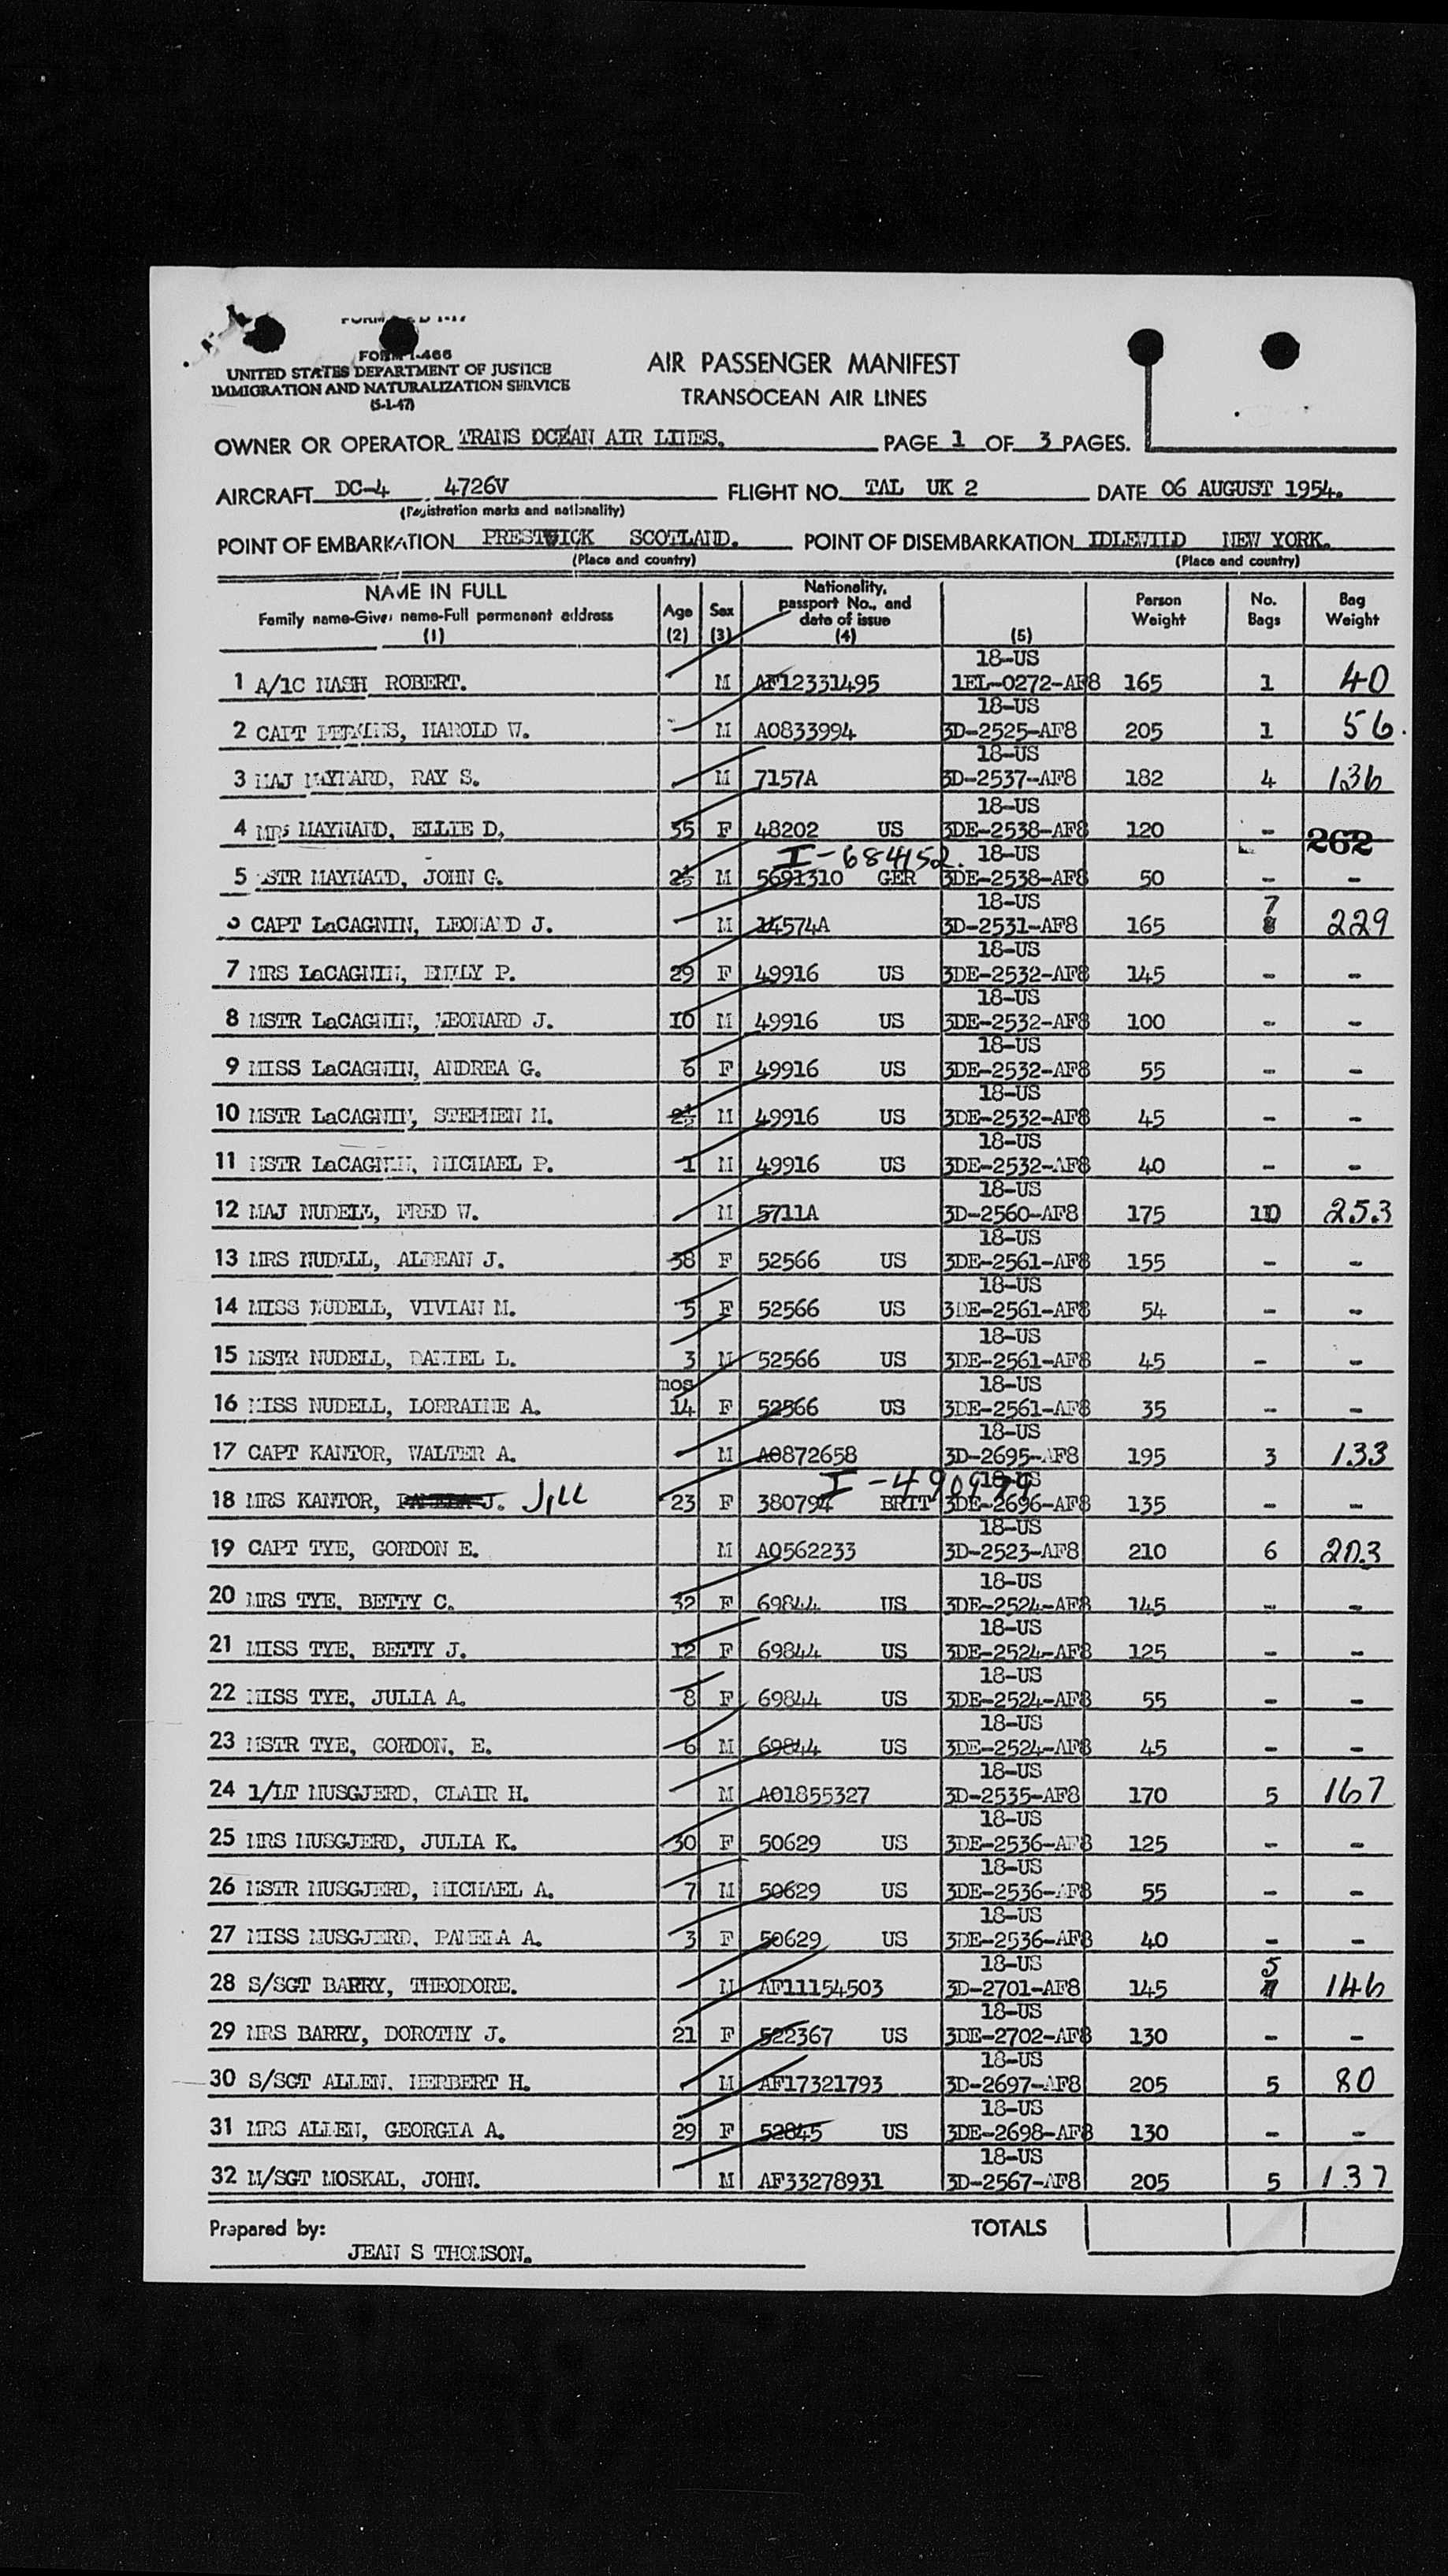 FORM I-466
UNITED STATES DEPARTMENT OF JUSTICE
IMMIGRATION AND NATURALIZATION SERVICE
(5-1-47)
AIR PASSENGER MANIFEST
TRANSOCEAN AIR LINES
OWNER OR OPERATOR TRANS OCEAN AIR LINES. PAGE 1 OF 3 PAGES.
AIRCRAFT DC-4 4726V FLIGHT NO. TAL UK 2 DATE 06 AUGUST 1954.
(Registration marks and nationality)
POINT OF EMBARKATION PRESTWICK SCOTLAND. POINT OF DISEMBARKATION IDLEWILD NEW YORK.
(Place and country) (Place and country)
NAME IN FULL
Family name-Given name-Full permanent address
(1)
Age
(2)
Sex
(3)
Nationality,
passport No., and
date of issue
(4)
(5)
Person
Weight
No.
Bags
Bag
Weight
18-US
1 A/1C NASH ROBERT. M AF12331495 1EL-0272-AF8 165 1 40
18-US
2 CAPT PERKINS, HAROLD W. M AO833994 3D-2525-AF8 205 1 56.
18-US
3 MAJ MAYNARD, RAY S. M 7157A 3D-2537-AF8 182 4 136
18-US
4 MRS MAYNARD, ELLIE D, 35 F 48202 US 3DE-2538-AF8 120 - 262
I-684152. 18-US
5 STR MAYNARD, JOHN G. 2½ M 5691310 GER 3DE-2538-AF8 50 - -
18-US 7
CAPT LaCAGNIN, LEONARD J. M 14574A 3D-2531-AF8 165 8 229
18-US
7 MRS LaCAGNIN, EMILY P. 29 F 49916 US 3DE-2532-AF8 145 - -
18-US
8 MSTR LaCAGNIN, LEONARD J. 10 M 49916 US 3DE-2532-AF8 100 - -
18-US
9 MISS LaCAGNIN, ANDREA G. 6 F 49916 US 3DE-2532-AF8 55 - -
18-US
10 MSTR LaCAGNIN, STEPHEN M. 2½ M 49916 US 3DE-2532-AF8 45 - -
18-US
11 MSTR LaCAGNIN, MICHAEL P. 1 M 49916 US 3DE-2532-AF8 40 - -
18-US
12 MAJ NUDELL, FRED W. M 5711A 3D-2560-AF8 175 10 253
18-US
13 MRS NUDELL, ALDEAN J. 38 F 52566 US 3DE-2561-AF8 155 - -
18-US
14 MISS NUDELL, VIVIAN M. 5 F 52566 US 3DE-2561-AF8 54 - -
18-US
15 MSTR NUDELL, DANIEL L. 3 M 52566 US 3DE-2561-AF8 45 - -
mos 18-US
16 MISS NUDELL, LORRAINE A. 14 F 52566 US 3DE-2561-AF8 35 - -
18-US
17 CAPT KANTOR, WALTER A. M AO872658 3D-2695-AF8 195 3 133
I-490979 18-US
18 MRS KANTOR, PAMELA J. Jill 23 F 380794 BRIT 3DE-2696-AF8 135 - -
18-US
19 CAPT TYE, GORDON E. M AO562233 3D-2523-AF8 210 6 203
18-US
20 MRS TYE, BETTY C. 32 F 69844 US 3DE-2524-AF8 145 - -
18-US
21 MISS TYE, BETTY J. 12 F 69844 US 3DE-2524-AF8 125 - -
18-US
22 MISS TYE, JULIA A. 8 F 69844 US 3DE-2524-AF8 55 - -
18-US
23 MSTR TYE, GORDON, E. 6 M 69844 US 3DE-2524-AF8 45 - -
18-US
24 1/LT MUSGJERD, CLAIR H. M AO1855327 3D-2535-AF8 170 5 167
18-US
25 MRS MUSGJERD, JULIA K. 30 F 50629 US 3DE-2536-AF8 125 - -
18-US
26 MSTR MUSGJERD, MICHAEL A. 7 M 50629 US 3DE-2536-AF8 55 - -
18-US
27 MISS MUSGJERD, PAMELA A. 3 F 50629 US 3DE-2536-AF8 40 - -
18-US 5
28 S/SGT BARRY, THEODORE. M AF11154503 3D-2701-AF8 145 146
18-US
29 MRS BARRY, DOROTHY J. 21 F 522367 US 3DE-2702-AF8 130 - -
18-US
30 S/SGT ALLEN, HERBERT H. M AF17321793 3D-2697-AF8 205 5 80
18-US
31 MRS ALLEN, GEORGIA A. 29 F 52845 US 3DE-2698-AF8 130 - -
18-US
32 M/SGT MOSKAL, JOHN. M AF33278931 3D-2567-AF8 205 5 137
Prepared by: TOTALS
JEAN S THOMSON.